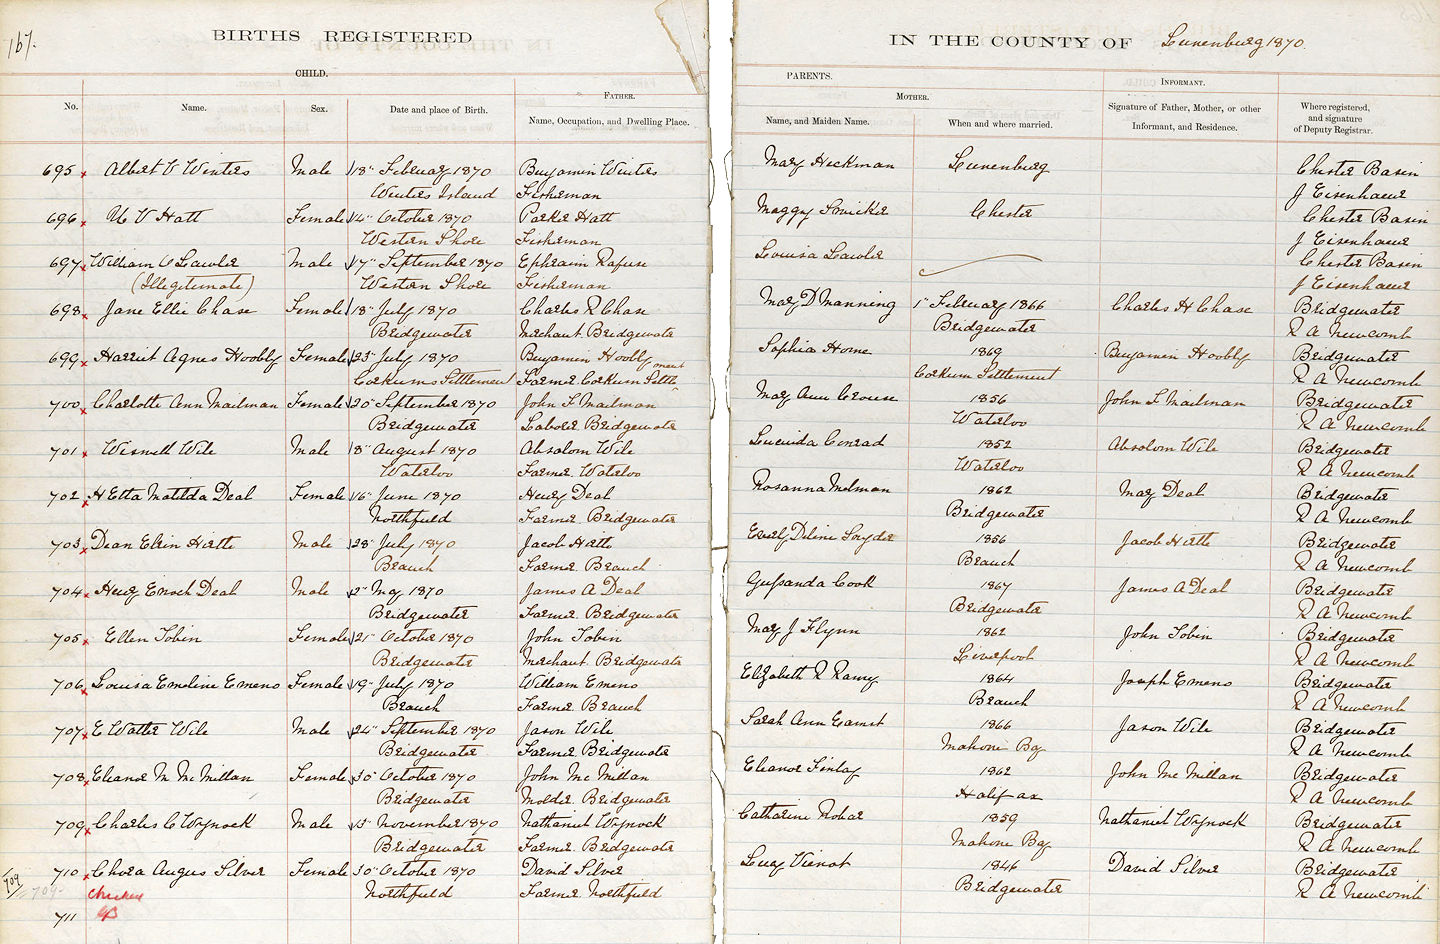 167.
BIRTHS REGISTERED
IN THE COUNTY OF Lunenburg 1870.
CHILD.
PARENTS.
No.
Name.
Sex.
Date and place of Birth.
FATHER.
Name, Occupation, and Dwelling Place.
MOTHER.
Name, and Maiden Name.
When and where married.
INFORMANT.
Signature of Father, Mother, or other
Informant, and Residence.
Where registered,
and signature
of Deputy Registrar.
695 Albert V Winters Male 18" February 1870 Benjamin Winters Mary Heckman Lunenburg Chester Basin
Winters Island Fisherman J Eisenhauer
696 U V Hatt Female 14" October 1870 Parker Hatt Maggy Chester Chester Basin
Western Shore Fisherman J Eisenhauer
697 William C Lawler Male 17" September 1870 Ephraim Rafuse Louisa Lawler Chester Basin
(Illegitimate) Western Shore Fisherman J Eisenhauer
698 Jane Ellie Chase Female 18" July 1870 Charles R Chase Mary D Manning 1" February 1866 Charles H Chase Bridgewater
Bridgewater Merchant Bridgewater Bridgewater R A Newcomb
699 Harriet Agnes Hoobly Female 23" July 1870 Benjamin Hoobly Sophia Horne 1869 Benjamin Hoobly Bridgewater
Corkums Settlement Farmer Corkum Settlement Corkum Settlement R A Newcomb
700 Charlotte Ann Mailman Female 20" September 1870 John F Mailman Mary Ann Crouse 1856 John F Mailman Bridgewater
Bridgewater Laborer Bridgewater Waterloo R A Newcomb
701 Wile Male 8" August 1870 Absolom Wile Lucinda Conrad 1852 Absolom Wile Bridgewater
Waterloo Farmer Waterloo Waterloo R A Newcomb
702 H Etta Matilda Deal Female 16" June 1870 Henry Deal Rosanna 1862 Mary Deal Bridgewater
Northfield Farmer Bridgewater Bridgewater R A Newcomb
703 Dean Hirtle Male 28" July 1870 Jacob Hirtle Snyder 1856 Jacob Hirtle Bridgewater
Branch Farmer Branch Branch R A Newcomb
704 Henry Enoch Deal Male 2" May 1870 James A Deal Cook 1867 James A Deal Bridgewater
Bridgewater Farmer Bridgewater Bridgewater R A Newcomb
705 Ellen Tobin Female 21" October 1870 John Tobin Mary J Flynn 1862 John Tobin Bridgewater
Bridgewater Merchant Bridgewater Liverpool R A Newcomb
706 Louisa Emeline Emeno Female 19" July 1870 William Emeno Elizabeth R Ramy 1864 Joseph Emeno Bridgewater
Branch Farmer Branch Branch R A Newcomb
707 E Walter Wile Male 24" September 1870 Jason Wile Sarah Ann 1866 Jason Wile Bridgewater
Bridgewater Farmer Bridgewater Mahone Bay R A Newcomb
708 Eleanor M McMillan Female 30" October 1870 John McMillan Eleanor Finlay 1862 John McMillan Bridgewater
Bridgewater Molder Bridgewater Halifax R A Newcomb
709 Charles C Wynock Male 13" November 1870 Nathaniel Wynock Catharine 1859 Nathaniel Wynock Bridgewater
Bridgewater Farmer Bridgewater Mahone Bay R A Newcomb
710 Chora Augus Silver Female 30" October 1870 David Silver Lucy Vienot 1846 David Silver Bridgewater
Northfield Farmer Northfield Bridgewater R A Newcomb
709
709
Checked
711